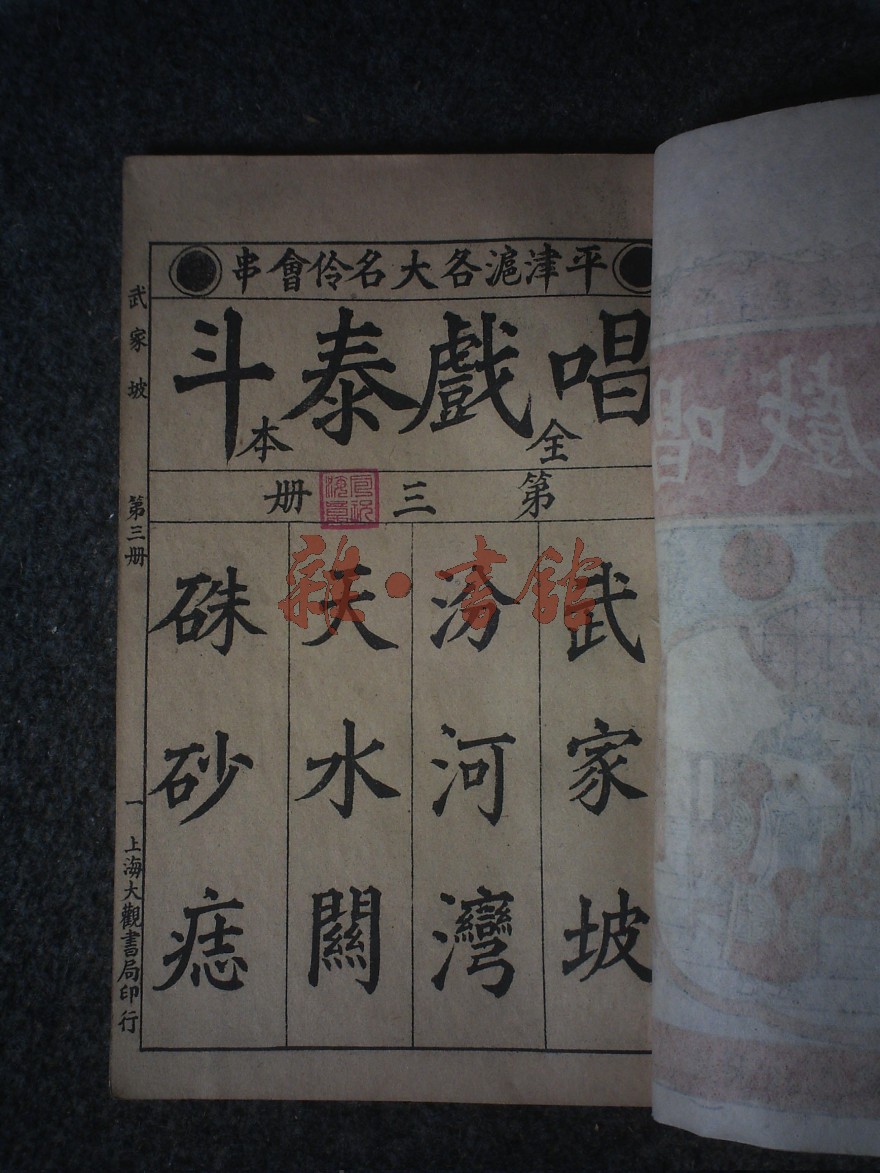 平津滬各大名伶會串
唱戲泰斗
全本
第三册
武家坡
汾河灣
天水關
硃砂痣
武家坡
第三册
一
上海大觀書局印行
雜·書館
唱戲